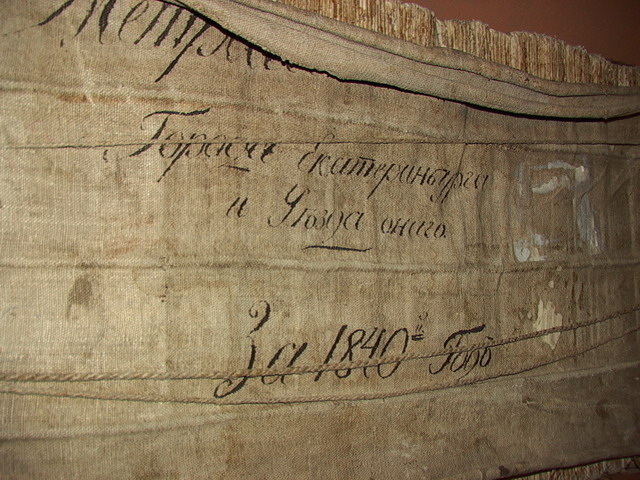 Города Екатеринбурга
и Уѣзда онаго.
За 1840й Годъ